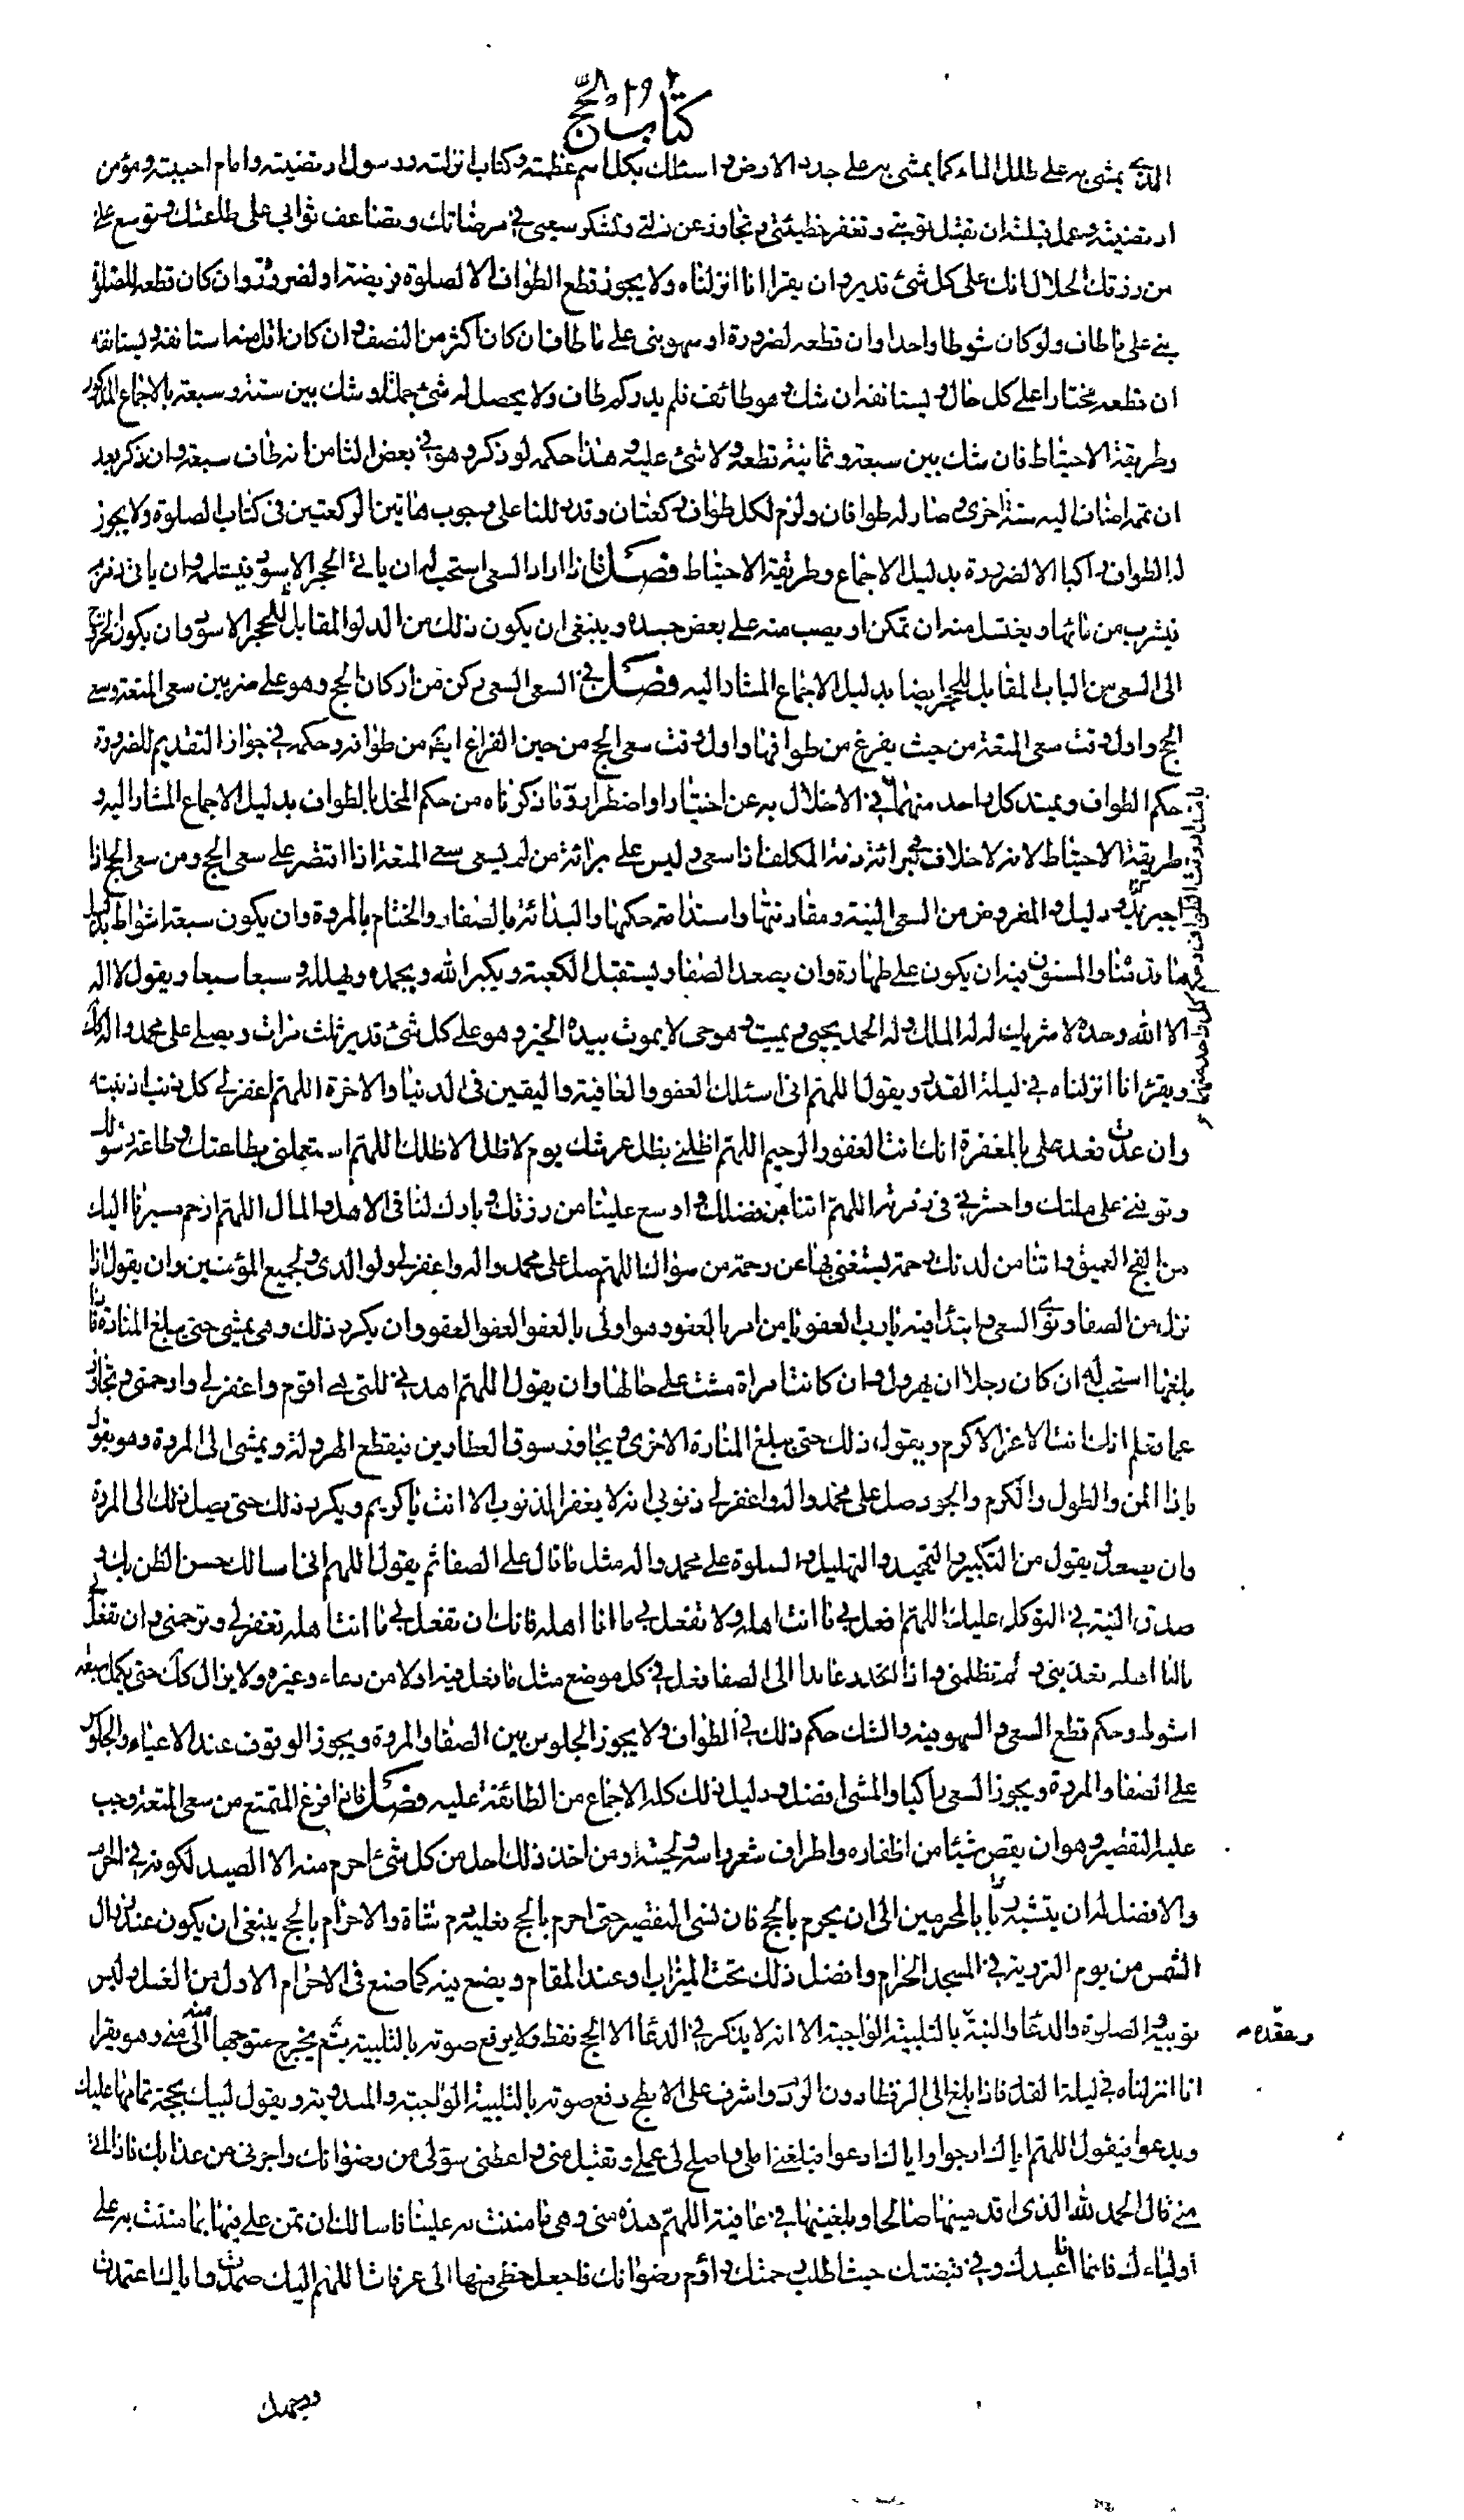 كتاب الحج
الذي يمشى به على طلل الماء كما يمشى به على جدد الارض و اسئلك بكل اسم عظمته و كتاب انزلته و رسول ارتضيته و امام احببته و مؤمن
ارتضيته و عمل قبلته ان تقبل توبتي و تغفر خطيئتي و تجاوز عن زلتي و تشكر سعيى في مرضاتك و تضاعف ثوابى على طاعتك و توسع على
من رزقك الحلال انك على كل شئ قدير و ان يقرا انا انزلناه ولا يجوز قطع الطواف الا لصلوة فريضة او لضرورة وان كان قطعه للصلوة
بنى على ما طاف ولو كان شوطا واحدا وان قطعه لضرورة او سهو بنى على ما طاف ان كان اكثر من النصف و ان كان اقل منه استانفه و يستانفه
ان قطعه مختارا على كل حال و يستانفه ان شك و هو طائف فلم يدر كم طاف ولا يحصل له شئ جملة او شك بين ستة و سبعة بالاجماع المذكور
وطريقة الاحتياط فان شك بين سبعة و ثمانية قطعه و لا شئ عليه و هذا حكمه لو ذكر و هو في بعض الثامن انه طاف سبعة و ان ذكر بعد
ان تممه اضاف اليه ستة اخرى و صار له طوافان و لزم لكل طواف ركعتان و قد دللنا على وجوب هاتين الركعتين فى كتاب الصلوة ولا يجوز
له الطواف راكبا الا لضرورة بدليل الاجماع وطريقة الاحتياط فصل فاذا اراد السعى استحب له ان ياتى الحجر الاسود فيستلمه و ان ياتى زمزم
فيشرب من مائها و يغتسل منه ان تمكن او يصب منه على بعض جسده و ينبغى ان يكون ذلك من الدلو المقابل للحجر الاسود وان يكون الخروج
الى السعى من الباب المقابل للحجر ايضا بدليل الاجماع المشار اليه فصل في السعى السعى ركن من اركان الحج وهو على ضربين سعى المتعة وسعى
الحج و اول وقت سعى المتعة من حيث يفرغ من طوافها و اول وقت سعى الحج من حين الفراغ ايضا من طوافه و حكمه في جواز التقديم للضرورة
حكم الطواف و يمتد كل واحد منهما في الاخلال به عن اختيار او اضطرار و ما ذكرناه من حكم المخل بالطواف بدليل الاجماع المشار اليه و
طريقة الاحتياط لانه لا خلاف في برائة ذمة المكلف اذا سعى و ليس على برائة من لم يسعى سعى المتعة اذا اقتصر على سعى الحج ومن سعى الحج اذا
دليل و المفروض من السعى النية و مقارنتها و استدامة حكمها و البدائة بالصفا و الختام بالمروة وان يكون سبعة اشواط بدليل
ما قدمنا و المسنون فيه ان يكون على طهارة وان يصعد الصفا و يستقبل الكعبة و يكبر الله و يحمده و يهلله سبعا سبعا و يقول لا اله
الا الله وحده لا شريك له له الملك وله الحمد يحيى و يميت و هو حى لا يموت بيده الخير و هو على كل شئ قدير ثلث مرات و يصلى على محمد واله كذلك
ويقرء انا انزلناه في ليلة القدر و يقول اللهم انى اسئلك العفو و العافية و اليقين فى الدنيا و الاخرة اللهم اغفر لى كل ذنب اذنبته
وان عدت فعد على بالمغفرة انك انت الغفور الرحيم اللهم اظلنى بظل عرشك يوم لا ظل الا ظلك اللهم استعملنى بطاعتك و طاعة رسولك
و توفنى على ملتك واحشرنى فى زمرته اللهم اتنا من فضلك و اوسع علينا من رزقك و بارك لنا فى الاهل و المال اللهم ارحم مسيرنا اليك
من الفج العميق و اتنا من لدنك رحمة نستغنى بها عن رحمة من سواك اللهم صل على محمد واله واغفر لى ولوالدى و لجميع المؤمنين وان يقول اذا
نزل من الصفا و نوى السعى و ابتدا فيه يا رب العفو يا من امر بالعفو و هو اولى بالعفو العفو العفو وان يكرر ذلك وهو يمشى حتى يبلغ المنارة فاذا
بلغها استحب له ان كان رجلا ان يهرول و ان كانت امراة مشت على حالها وان يقول اللهم اهدنى للتى هى اقوم واغفر لى وارحمنى و تجاوز
عما تعلم انك انت الاعز الاكرم و يقول ذلك حتى يبلغ المنارة الاخرى و يجاوز سوق العطارين فيقطع الهرولة و يمشى الى المروة وهو يقول
يا ذا المن والطول و الكرم و الجود صل على محمد واله واغفر لى ذنوبى انه لا يغفر الذنوب الا انت يا كريم و يكرر ذلك حتى يصل ذلك الى المروة
وان يصعد و يقول من التكبير و التحميد و التهليل و الصلوة على محمد واله مثل ما قال على الصفا ثم يقول اللهم انى اسالك حسن الظن بك و
صدق النية في التوكل عليك اللهم افعل بى ما انت اهله و لا تفعل بى ما انا اهله فانك ان تفعل بى ما انت اهله تغفر لى و ترحمنى و ان تفعل بى
ما انا اهله تعذبنى و لم تظلمنى و اذا انحدر عائدا الى الصفا فعل في كل موضع مثل ما فعل فيه اولا من دعاء وغيره ولا يزال كذلك حتى يكمل سبعة
اشوط و حكم قطع السعى و السهو فيه و الشك حكم ذلك في الطواف و لا يجوز الجلوس بين الصفا و المروة و يجوز الوقوف عند الاعياء و الجلوس
على الصفا و المروة و يجوز السعى راكبا و المشى افضل و دليل ذلك كله الاجماع من الطائفة عليه فصل فاذا فرغ المتمتع من سعى المتعة وجب
عليه التقصير و هو ان يقص شيئا من اظفاره و اطراف شعر راسه و لحيته و من اخذ ذلك احل من كل شئ احرم منه الا الصيد لكونه في الحرم
والافضل له ان يتشبه بالمحرمين الى ان يحرم بالحج فان نسى التقصير حتى احرم بالحج فعليه دم شاة و الاحرام بالحج ينبغى ان يكون عند زوال
الشمس من يوم التروية في المسجد الحرام و افضل ذلك تحت الميزاب و عند المقام و يصنع فيه كما صنع فى الاحرام الاول من الغسل و لبس
ثوبيه و الصلوة و الدعاء و النية بالتلبية الواجبة الا انه لا يذكر في الدعا الا الحج فقط ولا يرفع صوته بالتلبية ثم يخرج متوجها الى منى وهو يقرا
انا انزلناه في ليلة القدر فاذا بلغ الى الرقطا دون الردم و اشرف على الابطح رفع صوته بالتلبية الواجبة و المندوبة و يقول لبيك بحجة تمامها عليك
ويدعوا فيقول اللهم اياك ارجوا و اياك ادعوا فبلغنى املى و اصلح لى عملى و تقبل منى و اعطنى سؤلى من رضوانك و اجرنى من عذابك فاذا اتى
منى قال الحمد لله الذى اقدمنيها صالحا و بلغنيها في عافية اللهم هذه منى و هى مما مننت به علينا فاسالك ان تمن على فيها بما مننت به على
اولياءك فانما انا عبدك و في قبضتك جئت اطلب رحمتك و اؤم رضوانك فاجعل حظى منها الى عرفات اللهم اليك صمدت و اياك اعتمدت
ووجهك